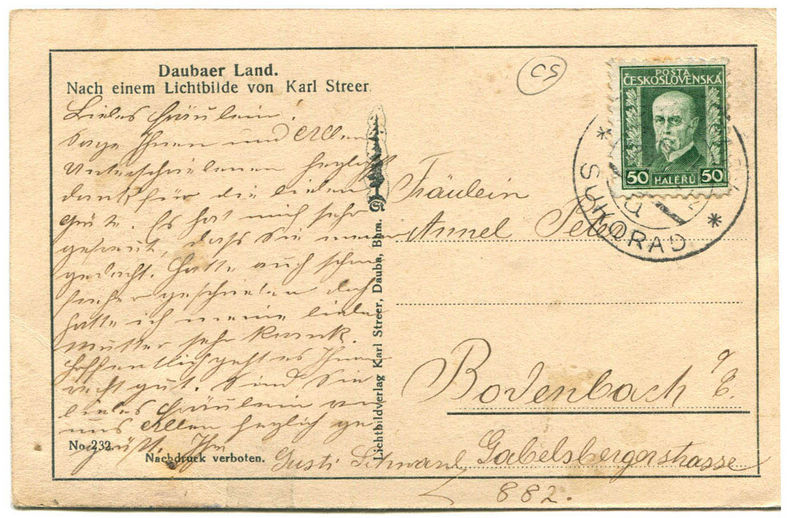 Daubaer Land.
Nach einem Lichtbilde von Karl Streer
Liebes Fräulein!
Sage Ihnen und Allen
Unterschriebenen herzlichst
Dank für die lieben
Grüße. Es hat mich sehr
gefreut, dass Sie meiner
gedacht. Hätte auch schon
früher geschrieben doch
hatte ich meine liebe
Mutter sehr krank.
Hoffentlich geht es Ihnen
recht gut. Sind Sie
liebes Fräulein von
uns Allen herzlich ge
grüßt. Ihre
Gusti
No. 232
Nachdruck verboten.
Lichtbildverlag Karl Streer, Dauba, Bhm.
CS
POSTA
ČESKOSLOVENSKÁ
50 HALÉŘŮ 50
Fräulein
Annel
Bodenbach a/E.
Gabelsbergerstrasse
882.